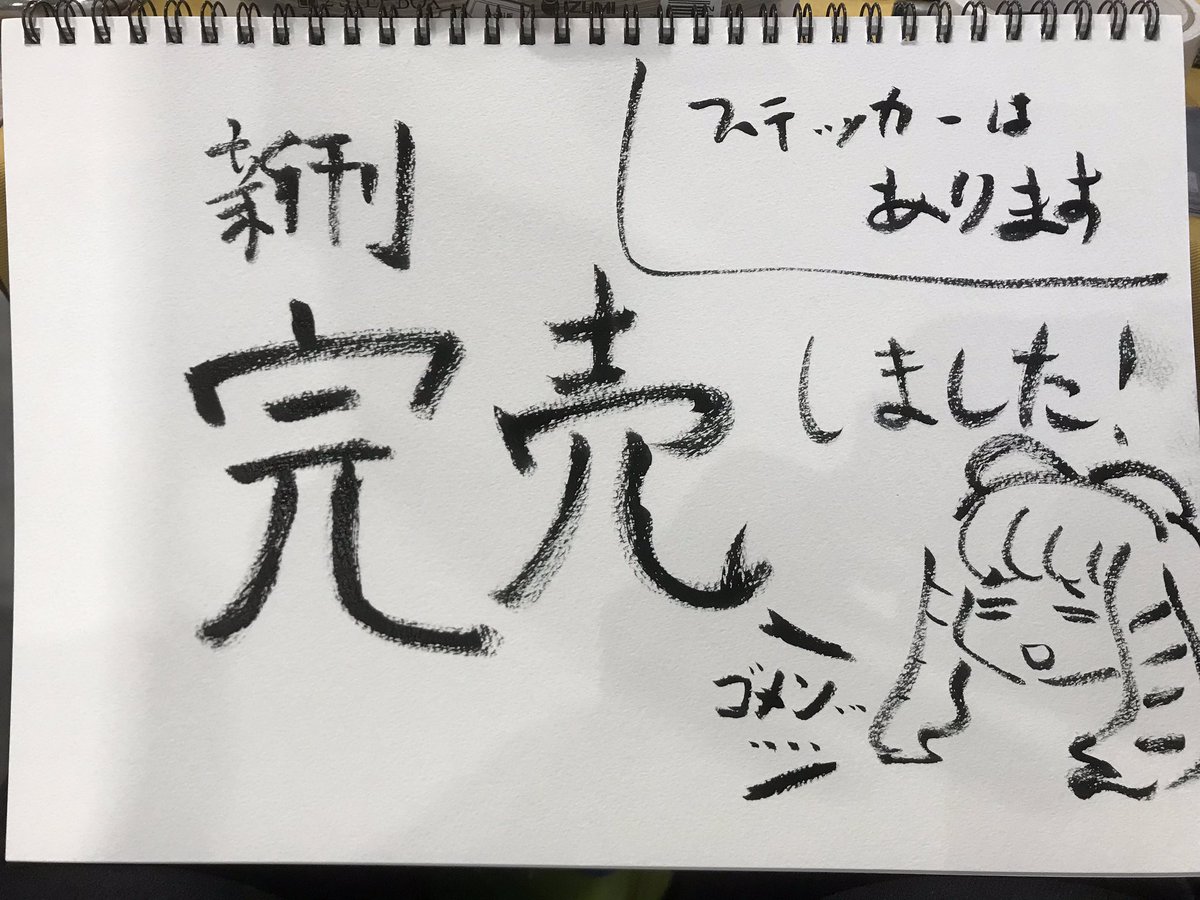 新刊
完売
しました!
ステッカーは
あります
ゴメン…
....
IZUMI